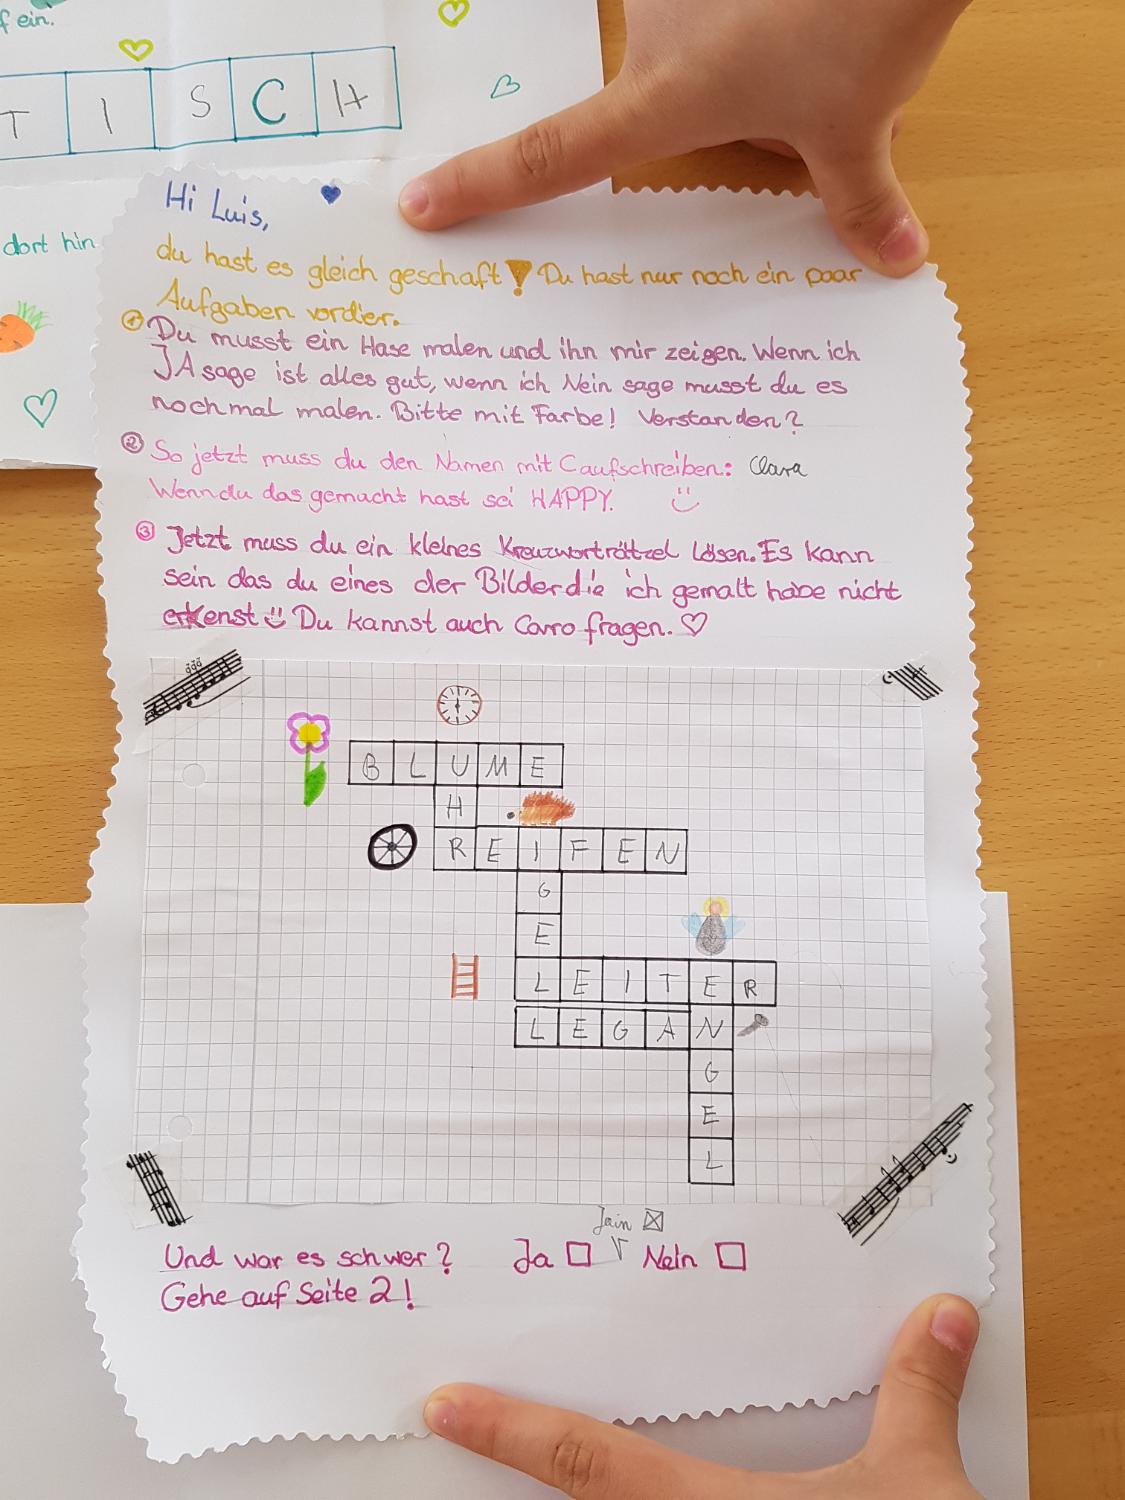 f ein.
T I S C H
dort hin
Hi Luis,
du hast es gleich geschaft! Du hast nur noch ein paar
Aufgaben vordier.
① Du musst ein Hase malen und ihn mir zeigen. Wenn ich
JA sage ist alles gut, wenn ich Nein sage musst du es
nochmal malen. Bitte mit Farbe! Verstanden?
② So jetzt muss du den Namen mit C aufschreiben: Clara
Wenn du das gemacht hast sei HAPPY.
③ Jetzt muss du ein kleines Kreuzworträtzel lösen. Es kann
sein das du eines der Bilder die ich gemalt habe nicht
erkenst Du kannst auch Carro fragen.
B L U M E
H
R E I F E N
G
E
L E I T E R
L E G A N
G
E
L
Jain
Und war es schwer? Ja Nein
Gehe auf Seite 2!